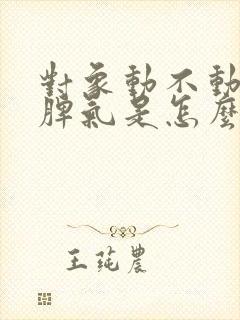 對象動不動
脾氣是怎麼
王莼農